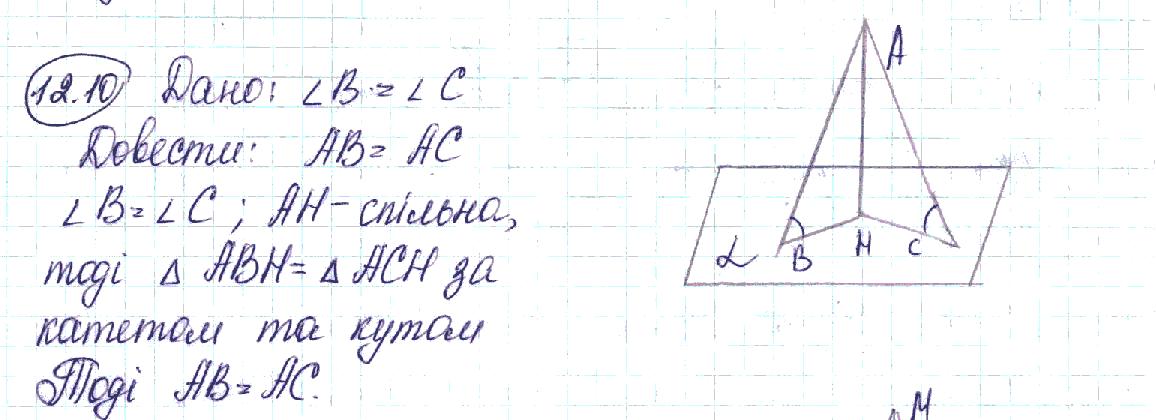 12.10 Дано: ∠B = ∠C
Довести: AB = AC
∠B = ∠C ; AH - спільна,
тоді △ ABH = △ ACH за
катетом та кутом
Тоді AB = AC.
A
α B H C
M